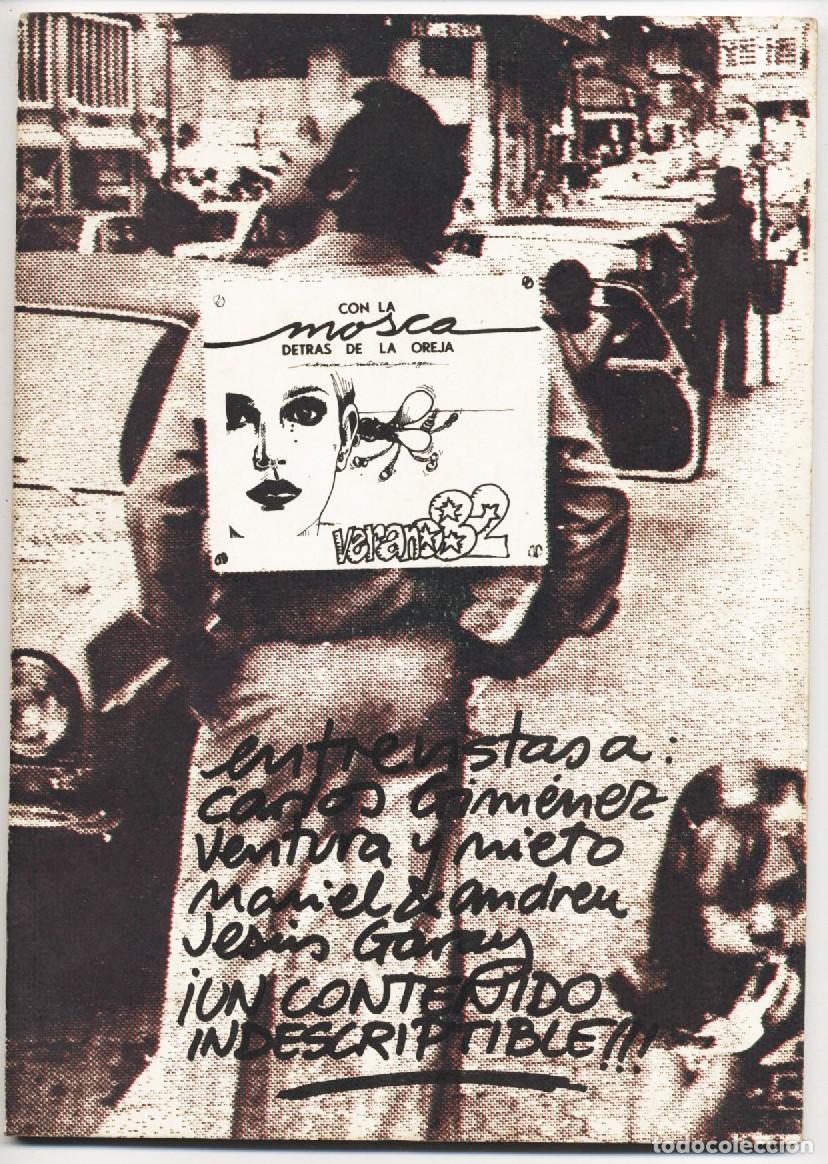 CON LA
mosca
DETRAS DE LA OREJA
comix música imagen
verano 82
entrevistas a:
carlos Giménez
ventura y nieto
Mariel & andreu
Jesús Garay
¡UN CONTENIDO
INDESCRIPTIBLE!!!
todocoleccion